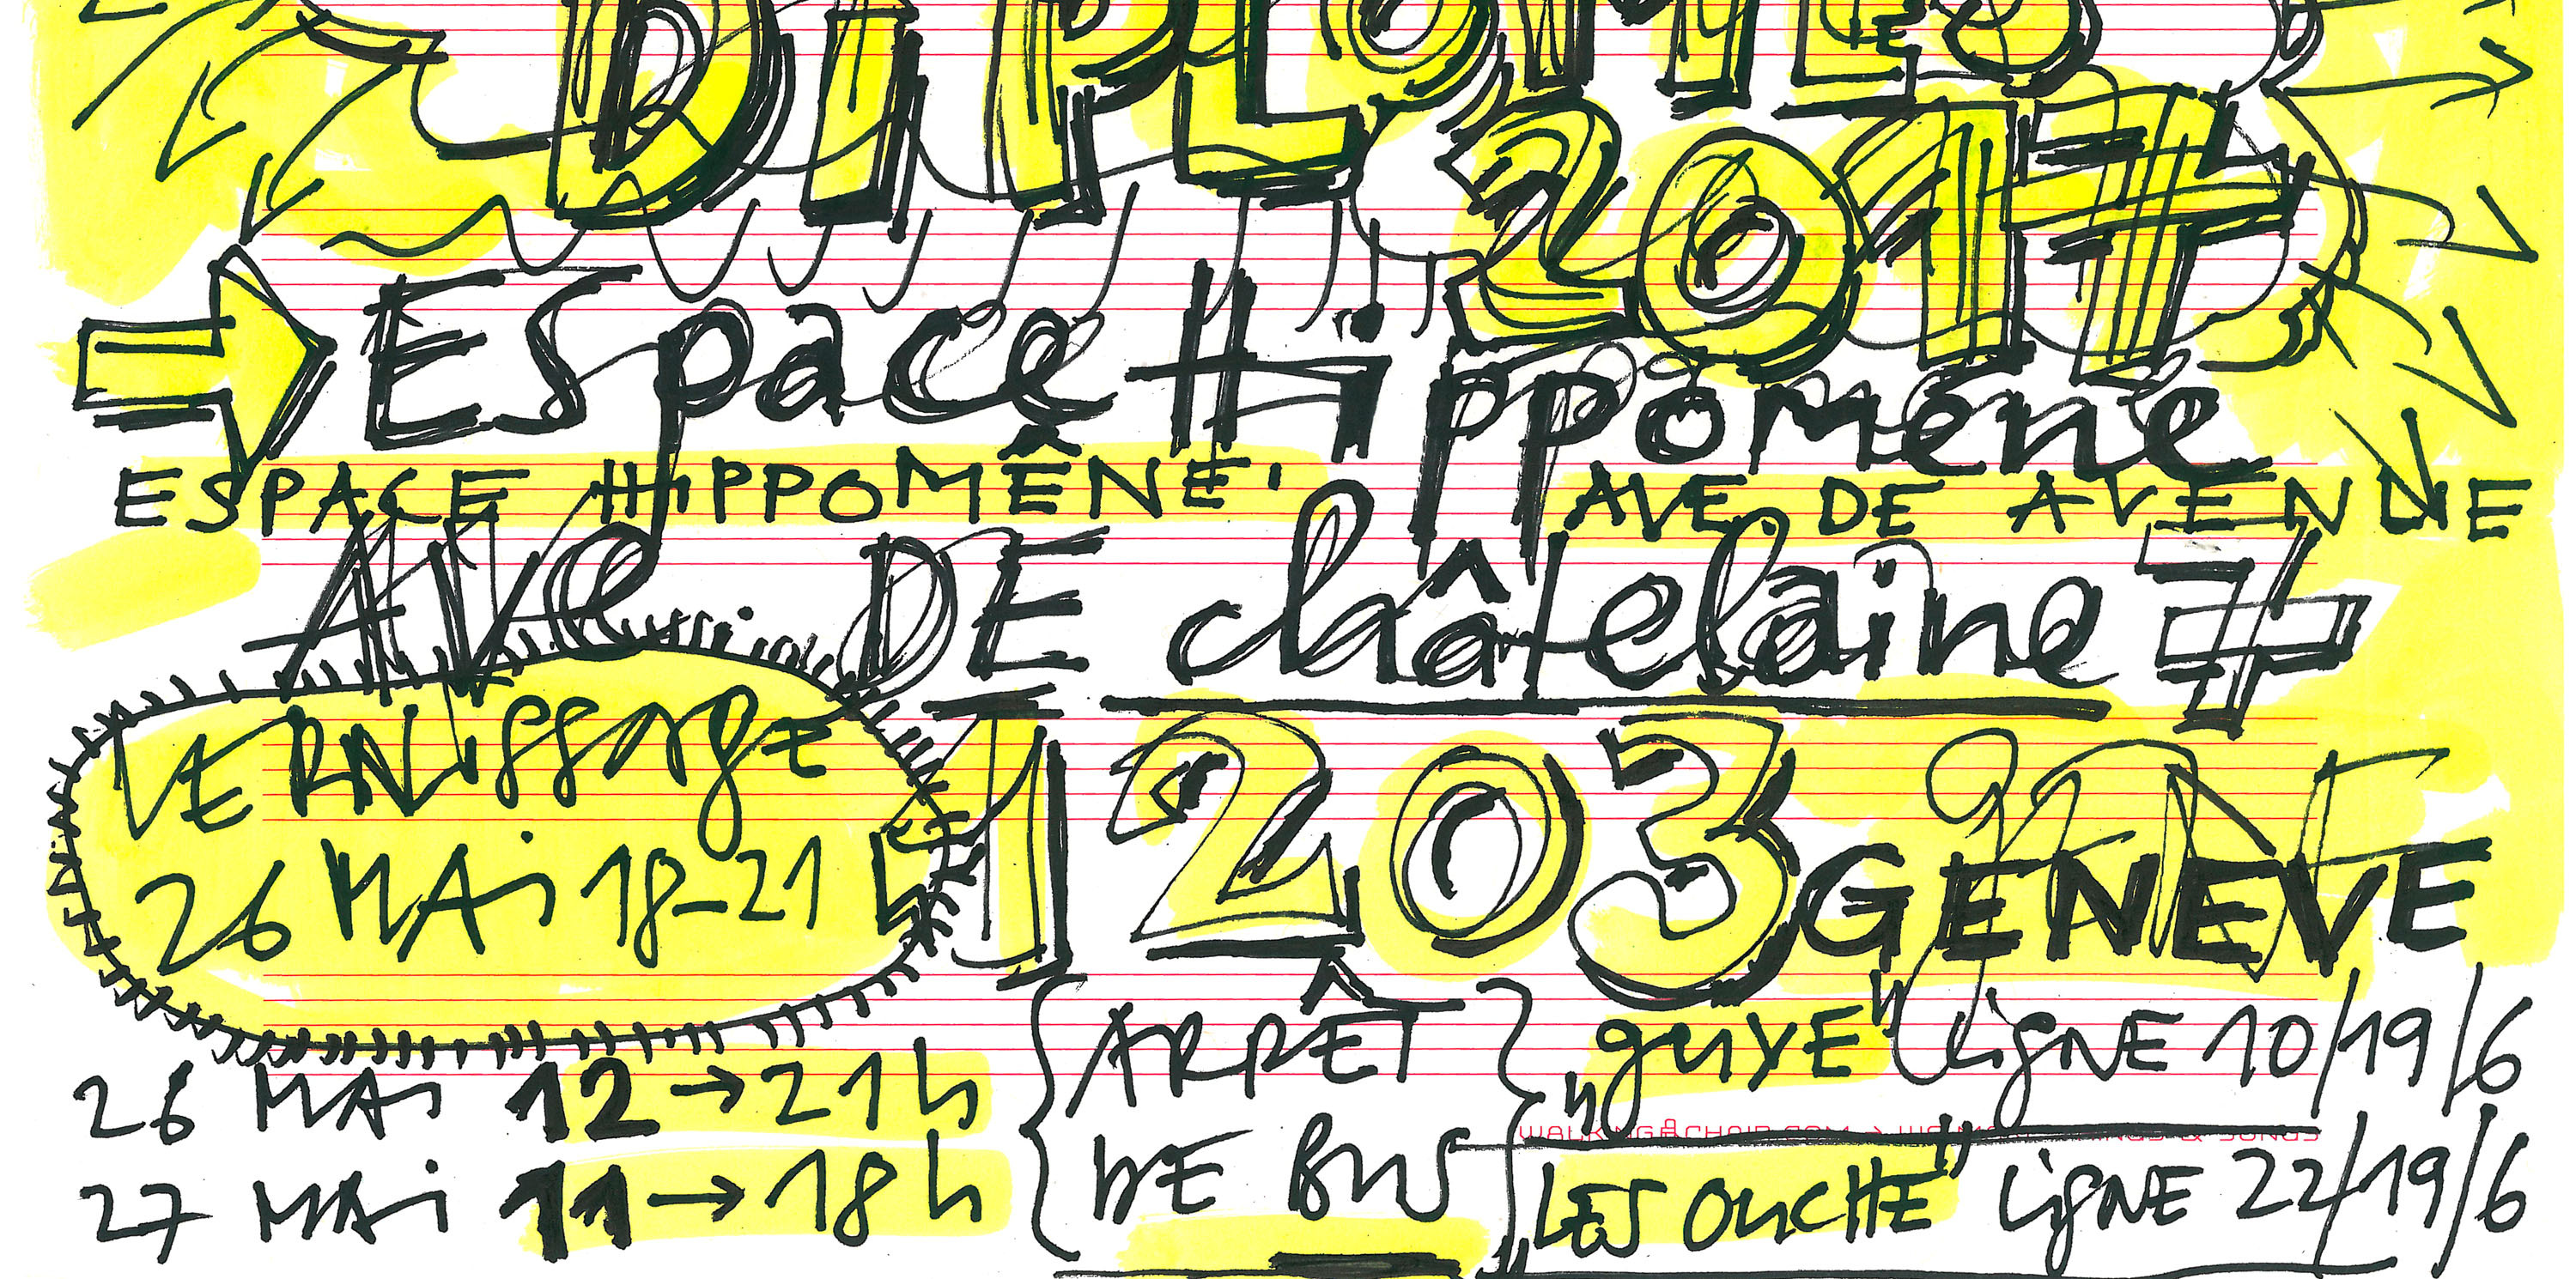 DiPLOMES
2017
ESpace Hippomène
ESPACE HiPPOMÊNE' AVE DE AVENUE
AVe. DE châtelaine 7
VERNissage
26 MAi 18-21 h
1203 GENEVE
26 MAi 12→21h
27 MAi 11→18h
ARRÊT
DE BUS
"guYE" LigNE 10/19/6
"LES OUCHE" LigNE 22/19/6